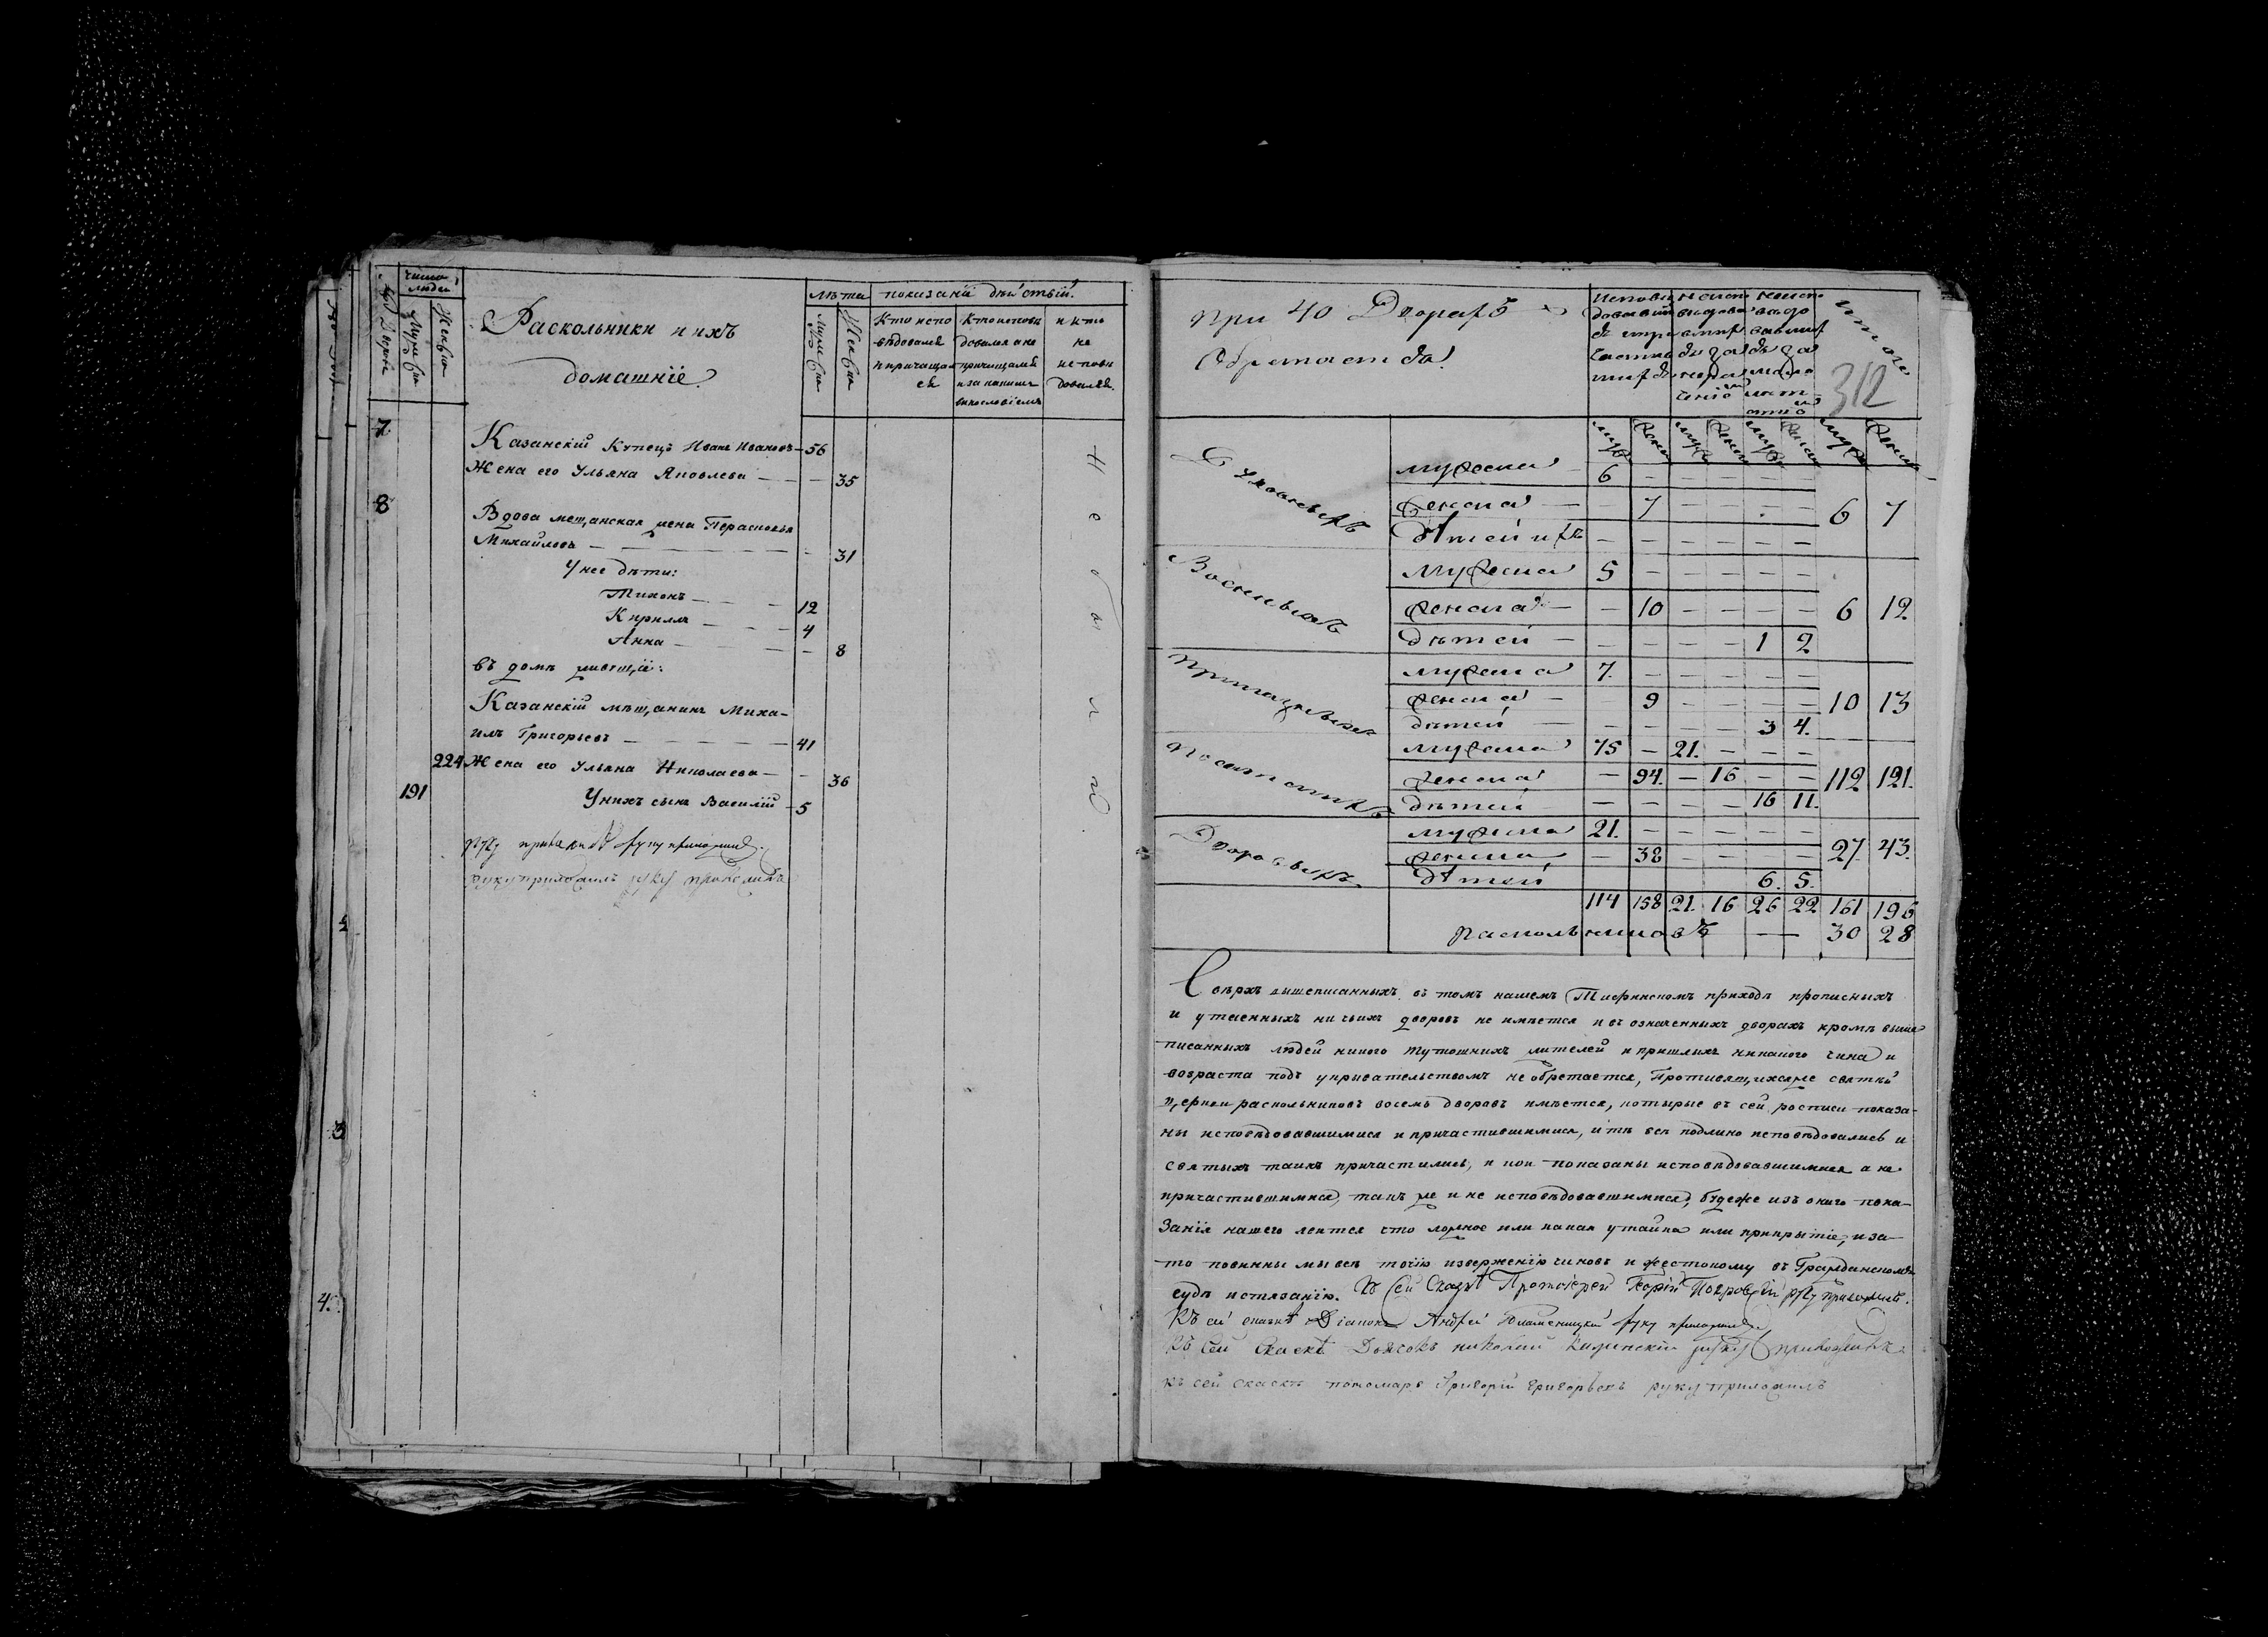 число
людей
Мужеска
Женска
Раскольники и ихъ
домашніе.
лѣта
показаніи дѣйствій.
Кто испо
вѣдовался
и причащал
ся
Кто исповѣ
довался а не
причащался
и за какимъ
винословіемъ
и кто
не
испові
довался.
7
Казанскій Купецъ Иванъ Ивановъ — 56
Жена его Ульяна Яковлева — — — 35
8
Вдова мещанская жена Парасковья
Михайлова — — — 31
У нее дѣти:
Тихонъ — — 12
Кириллъ — — 4
Анна — — 8
въ домѣ живущіе:
Казанскій мѣщанинъ Миха-
илъ Григорьевъ — — — 41
224 Жена его Ульяна Николаева — — 36
191 У нихъ сынъ Василій — 5
Не было
руку приложилъ руку приложилъ.
руку приложилъ руку приложилъ
2
3
4.
при 40 Дворахъ
Обрѣтается
Итого
312
Духовныхъ
мужеска — 6 — — — — —
женска — — 7 — — — — 6 7
дѣтей ихъ — — — — — —
Военныхъ
мужеска 5 — — — — —
женска — — 10 — — — — 6 12
дѣтей — — — — — 1 2
Приказныхъ
мужеска 7. — — — — —
женска — 9 — — — — 10 13
дѣтей — — — — — 3 4.
мужеска 75 — 21. — — —
женска — 94. — 16 — — 112 121.
дѣтей — — — — 16 11.
Дворовыхъ
мужеска 21. — — — — —
женска — 38 — — — — 27. 43.
дѣтей 6. 5.
114 158 21. 16 26 22 161 196
раскольниковъ — 30 28
Сверхъ вышеписанныхъ въ томъ нашемъ Тифинскомъ приходѣ прописныхъ
и утаенныхъ ни чьихъ дворовъ не имѣется и въ означенныхъ дворахъ кромѣ выше
писанныхъ людей никого тутошнихъ жителей и пришлыхъ никакого чина и
возраста подъ укривательствомъ не обретается, Противящихсяже святѣй
церкви раскольниковъ восемь дворовъ имѣется, которые въ сей росписи показа-
ны исповѣдовавшимися и причастившимися, и тѣ всѣ подлино исповѣдовались и
святыхъ таинъ причастились, и кои показаны исповѣдовавшимися а не
причастившимися, такъ же и не исповѣдовавшимися, будеже изъ онаго пока-
занія нашего явится что ложное или какая утайка или прикрытіе, и за
то повинны мы всѣ точію изверженію чиновъ и жестокому въ Гражданскомъ
судѣ истязанію. Къ Сей Сказкѣ Протоіерей Георгій Покровскій руку приложилъ.
Къ сей сказкѣ Діаконъ Андрей руку приложилъ.
Къ сей Скаскѣ Дьячокъ николай руку приложилъ
къ сей скаскѣ пономарь Григорій Григорьевъ руку приложилъ